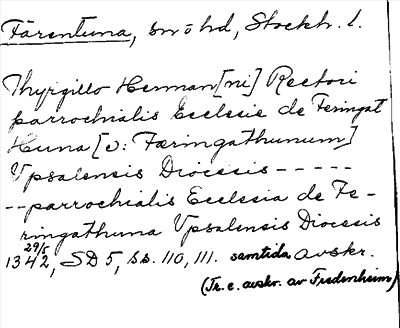 Färentuna, sn o hd, Stockh. l.
Thyrgillo Herman[ni] Rectori
parrochialis Ecclesie de Feringat
Huna [ɔ: Færingathunum]
Vpsalensis Diocesis - - - - -
-- parrochialis Ecclesia de Fe-
ringathuna Vpsalensis Diocesis
29/5
1342, SD 5, ss. 110, 111. samtida avskr.
(Tr. e. avskr. av Fredenheim)